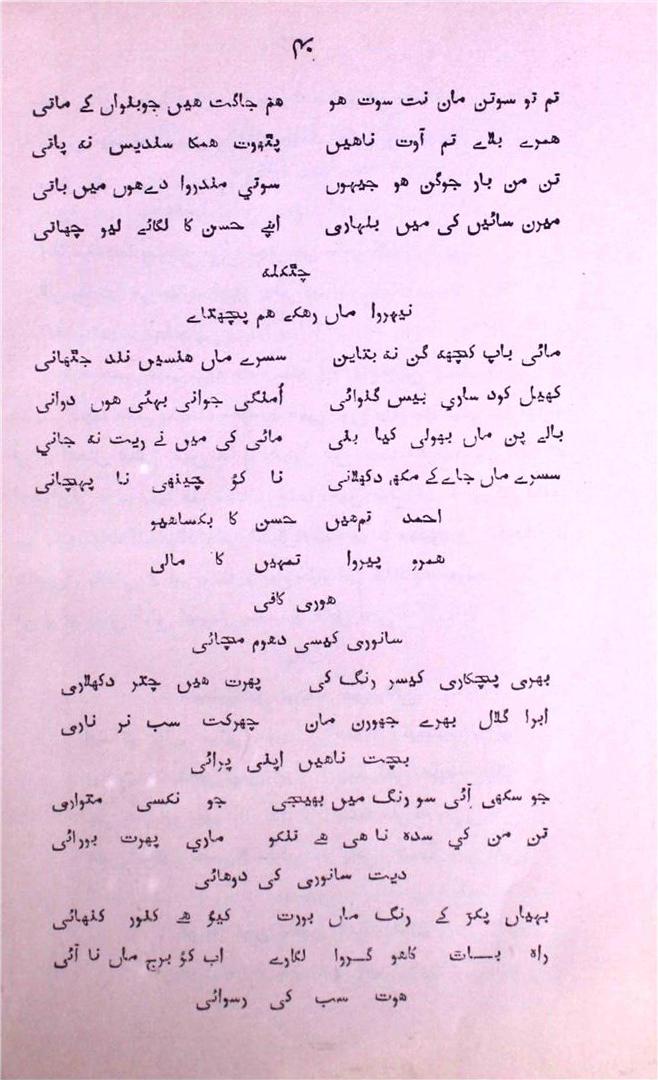 تم تو سوتن مان نت سوت هو    هم جاگت هیں جوبلواں کے ماتی
همرے بلاے تم آوت ناهیں    پتهوت همکا سندیس نه پاتی
تن من بار جوگن هو جیہوں    سوتي مندروا دےهوں میں باتی
میرن سائیں کی میں بلہاری    اپنے حسن کا لگائے لیو چهاتی
چتکله
نیہروا ماں رهکے هم پچهتاے
مائی باپ کچهه گن نه بتاین    سسرے ماں هنسیں نند جتهانی
کهیل کود ساري بیس گنوائی    اُمنگی جوانی بهئی هوں دوانی
بالے پن ماں بهولی کیا بنی    مائی کی میں نے ریت نه جاني
سسرے ماں جاے کے مکهه دکهلانی    نا کؤ چینهی نا پہچانی
احمد تمهیں حسن کا بکساهیو
همرو پیروا تمہیں کا مالی
هوری کافی
سانوری کیسی دهوم مچائی
بهری پچکاری کیسر رنگ کی    پهرت هیں چتر دکهلاری
ابرا گلال بهرے جهورن مان    چهرکت سب نر ناری
بچت ناهیں اپنی پرائی
جو سکهی آئی سو رنگ میں بهیجی    جو نکسی متواری
تن من کي سده ناهی هے تنکو    ماري پهرت بورائی
دیت سانوری کی دوهائی
بہیاں پکڑ کے رنگ ماں بورت    کیؤ هے کنور کنهائی
راه بات کاهو گروا لگارے    اب کؤ برج ماں نا آئی
هوت سب کی رسوائی